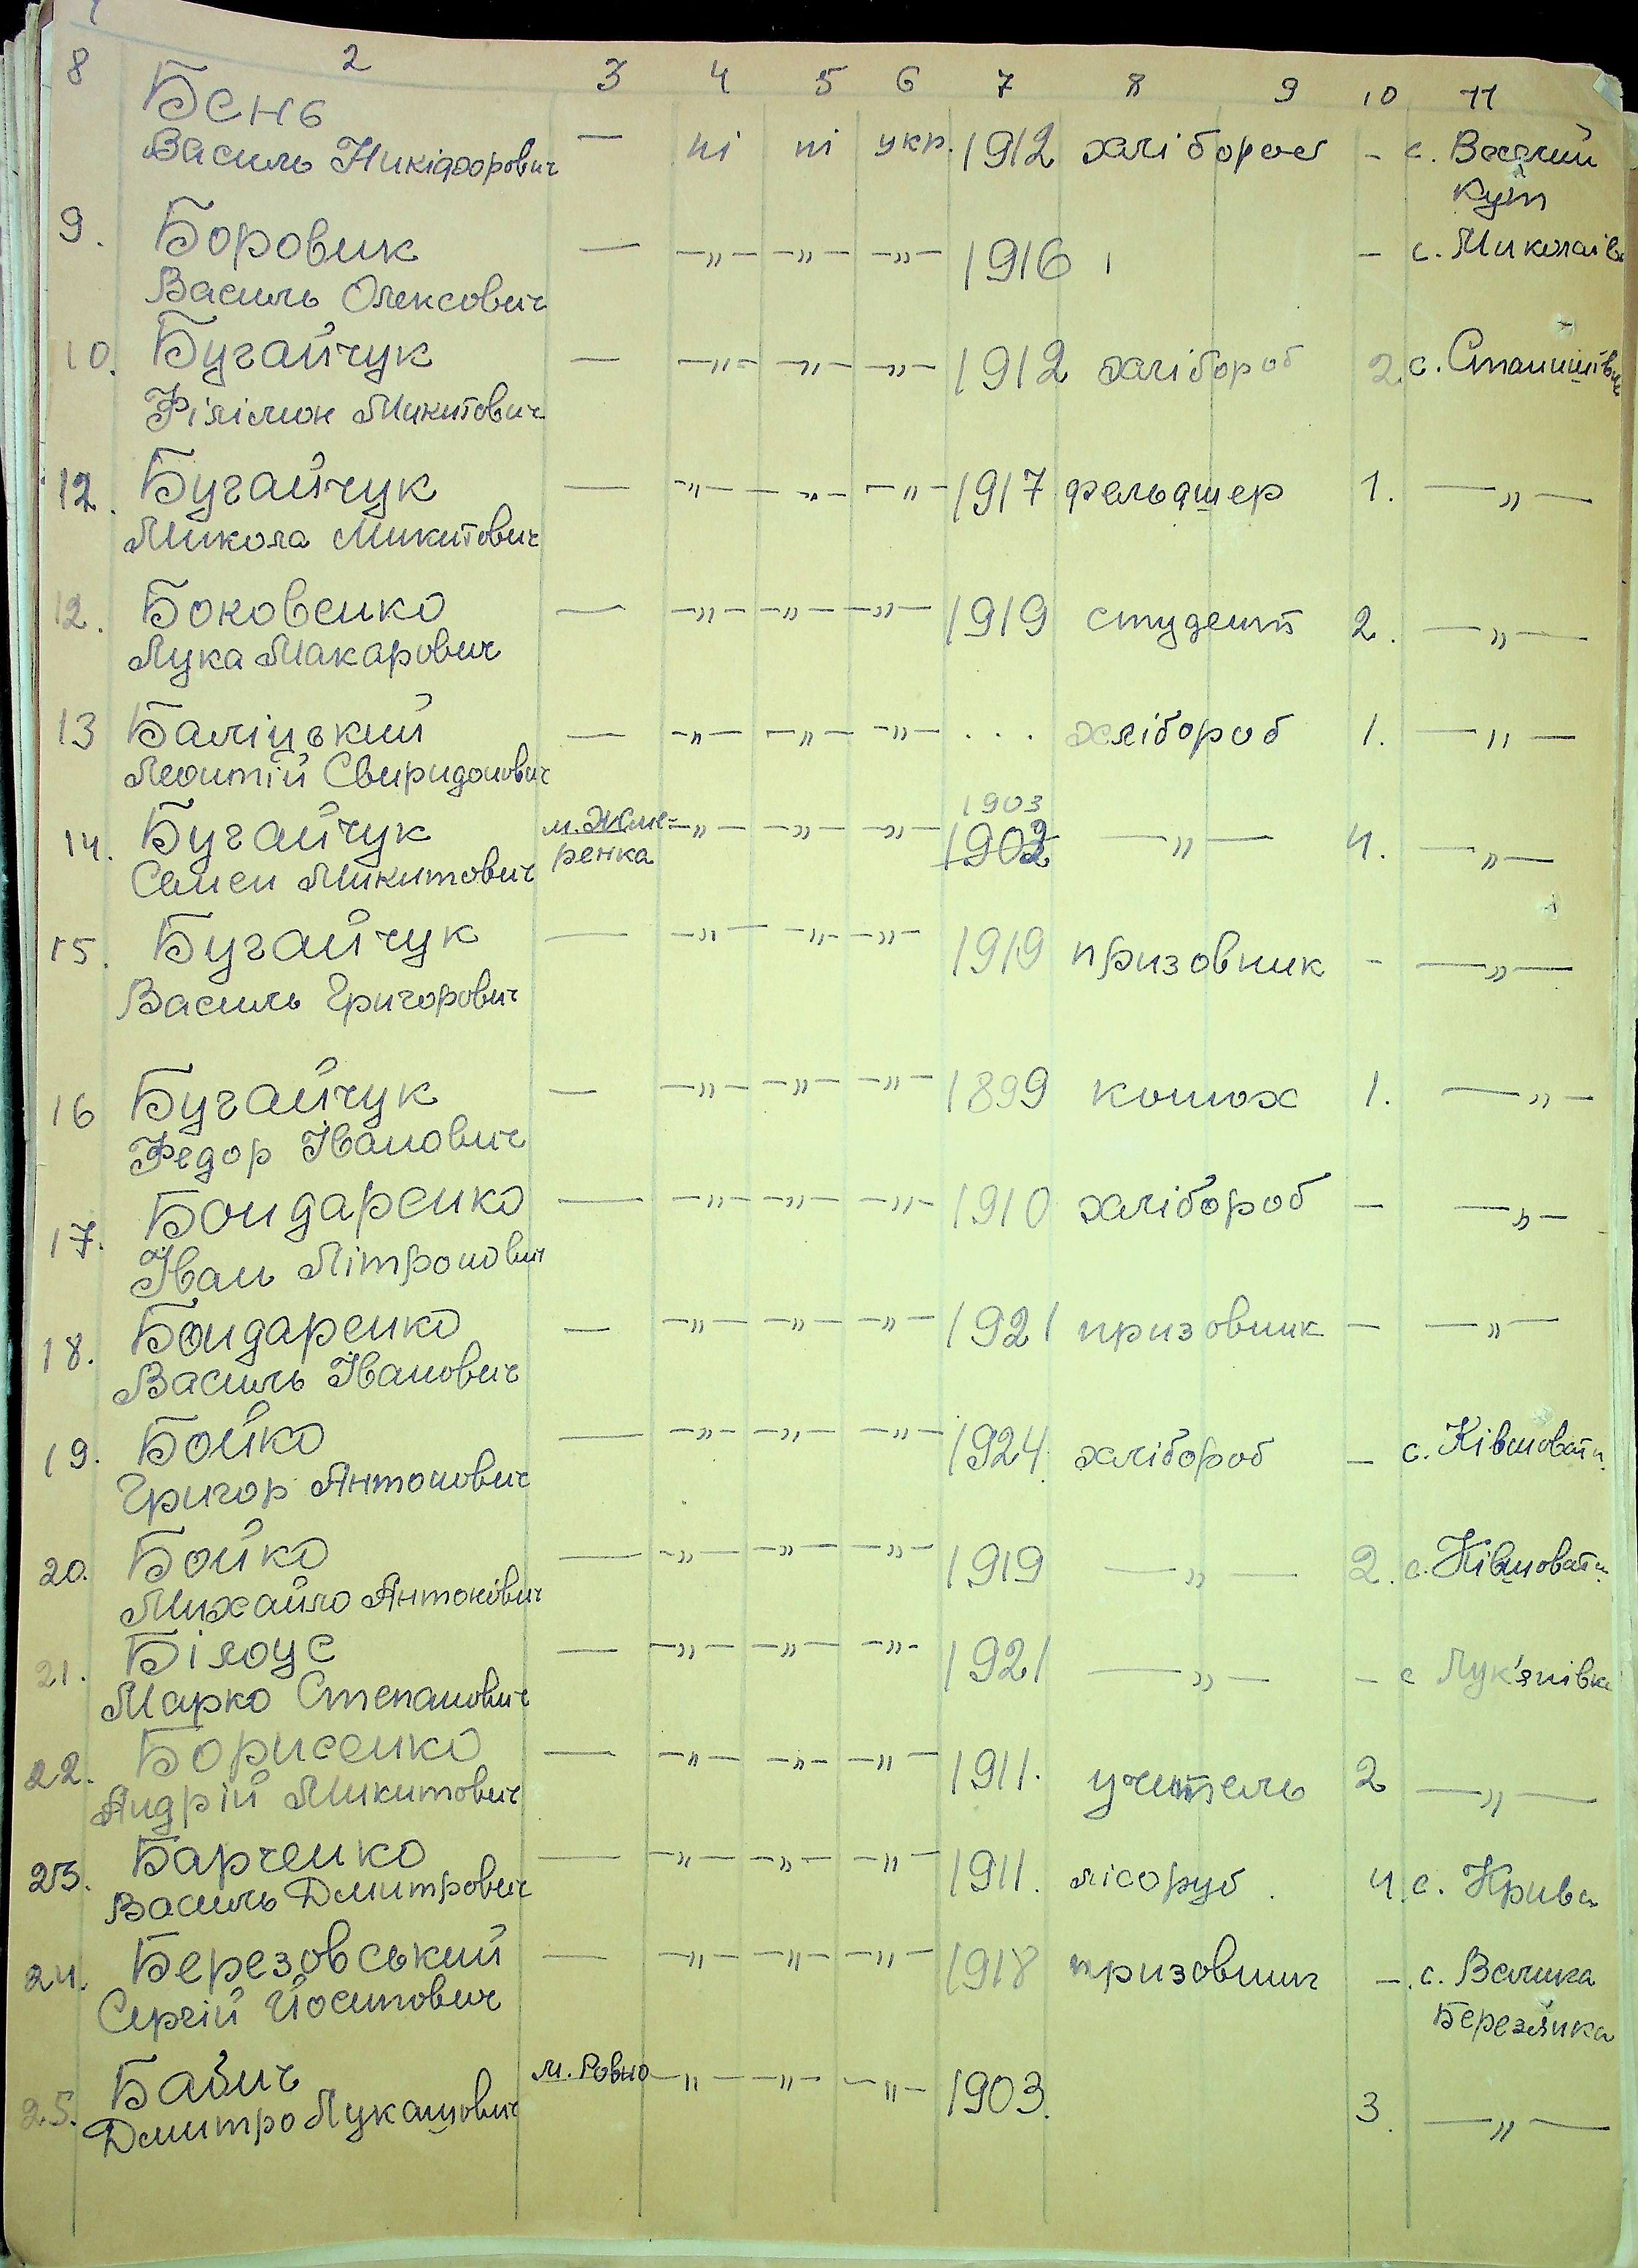 8 2 3 4 5 6 7 8 9 10 11
Бень
Василь Никіфорович — ні ні укр. 1912 хлібороб - с. Веселий
Кут
9. Боровик — —„— —„— —„— 1916 - с. Миколаївк
Василь Олексович
10. Бугайчук — —„— —„— —„— 1912 хлібороб 2. с. Станишівка
Філімон Микитович
12. Бугайчук — —„— —„— —„— 1917 фельдшер 1. —„—
Микола Микитович
12. Боковенко — —„— —„— —„— 1919 студент 2. —„—
Лука Макарович
13 Баліцький — —„— —„— —„— ... хлібороб 1. —„—
Леонтій Свиридонович
1903
14. Бугайчук м. Жме- —„— —„— —„— 1902 —„— 4. —„—
Семен Микитович ренка
15. Бугайчук — —„— —„— —„— 1919 призовник - —„—
Василь Григорович
16 Бугайчук — —„— —„— —„— 1899 конюх 1. —„—
Федор Іванович
17. Бондаренко — —„— —„— —„— 1910 хлібороб — —„—
Іван Мітронович
18. Бондаренко — —„— —„— —„— 1921 призовник — —„—
Василь Іванович
19. Бойко — —„— —„— —„— 1924 хлібороб — с. Ківшовата
Григор Антонович
20. Бойко — —„— —„— —„— 1919 —„— 2. с. Ківшовата
Михайло Антонович
21. Білоус — —„— —„— —„— 1921 —„— - с Лук'янівка
Марко Степанович
22. Борисенко — —„— —„— —„— 1911. учитель 2 —„—
Андрій Микитович
23. Барченко — —„— —„— —„— 1911. лісоруб. 4. с. Крива
Василь Дмитрович
24. Березовський — —„— —„— —„— 1918 призовник —. с. Велика
Сергій Йосипович Березянка
25. Бабич м. Ровно —„— —„— —„— 1903. 3. —„—
Дмитро Лукашович